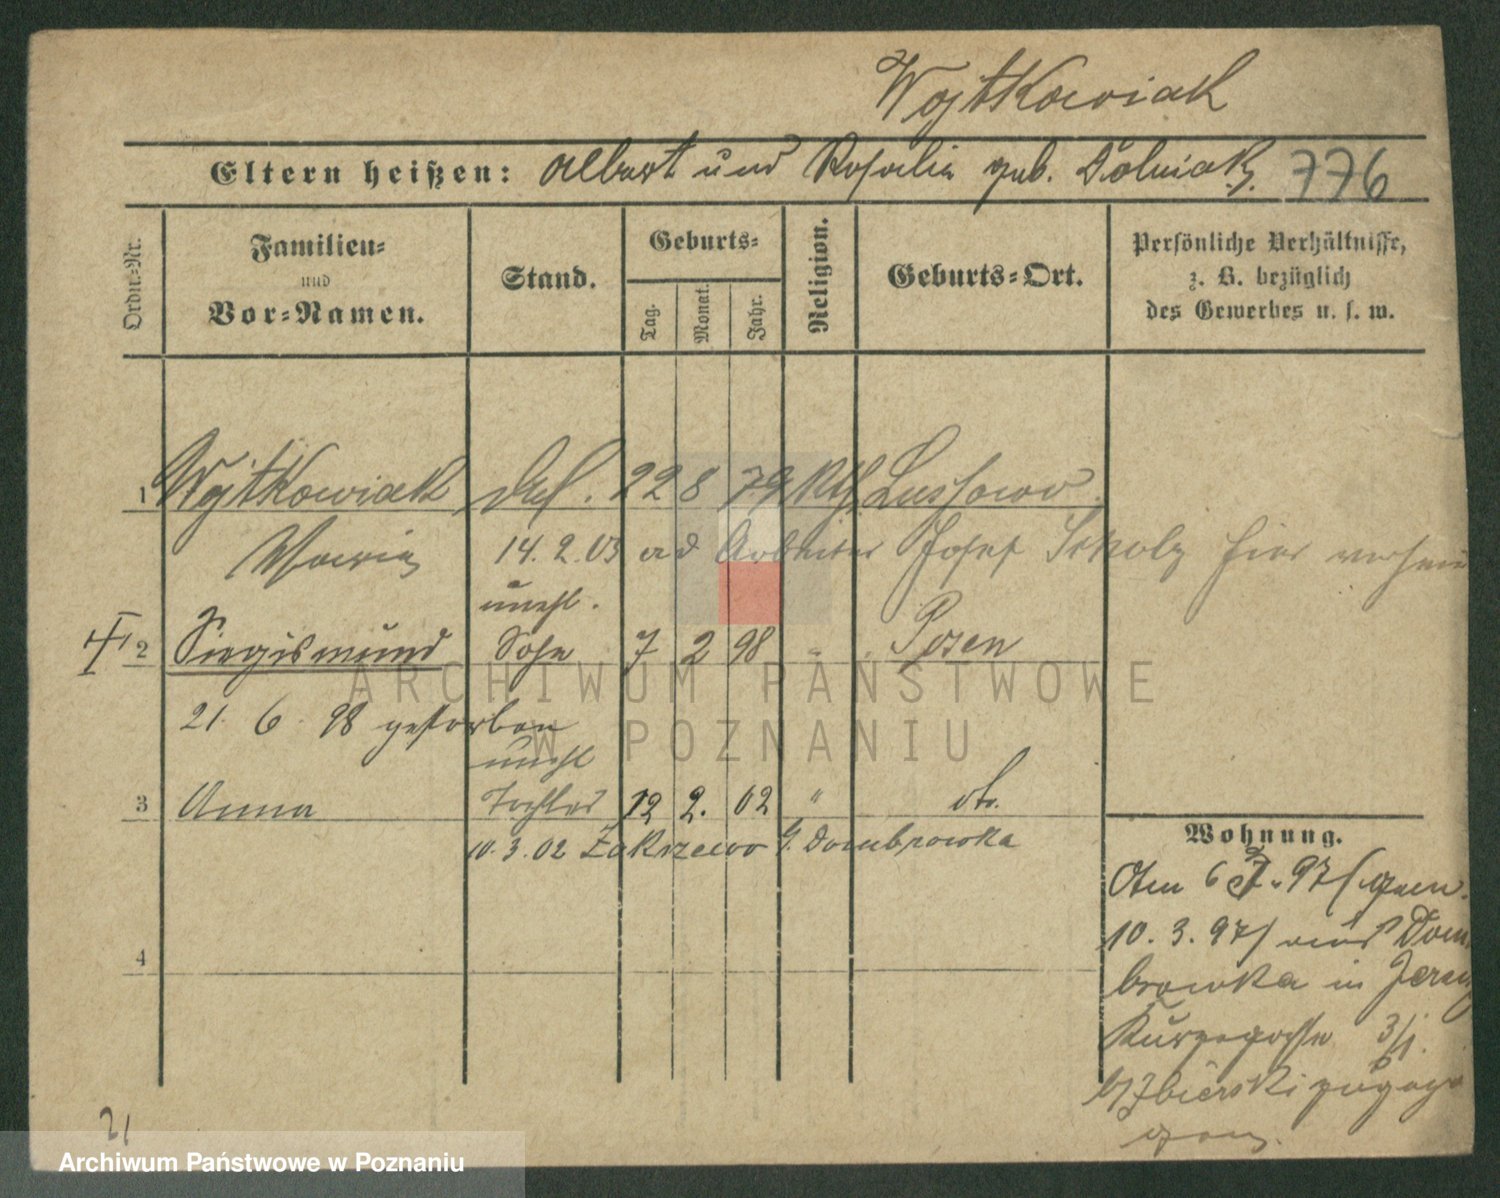 Wojtkowiak
Eltern heißen: Albert und Rosalie geb. Dolniak. 776
Ordn.-Nr.
Familien-
und
Vor-Namen.
Stand.
Geburts-
Tag.
Monat.
Jahr.
Religion.
Geburts-Ort.
Persönliche Verhältnisse,
z. B. bezüglich
des Gewerbes u. s. w.
1 Wojtkowiak led. 22 8 79 kth. Lussowo
Maria 14. 2. 03 ad Arbeiter Josef hier
unehl.
2 Siegismund Sohn 7 2 98 " Posen
21. 6. 98 gestorben
unehl
3 Anna Tochter 12 2. 02 " do.
10. 3. 02 Zakrzewo b. Dombrowka
4
Wohnung.
Am 6 7. 97 / gem.
10. 3. 97 / aus Dom
browka in Jersitz
Kurzegasse 3/I.
b/ zugezo
gen.
21
ARCHIWUM PAŃSTWOWE
W POZNANIU
Archiwum Państwowe w Poznaniu